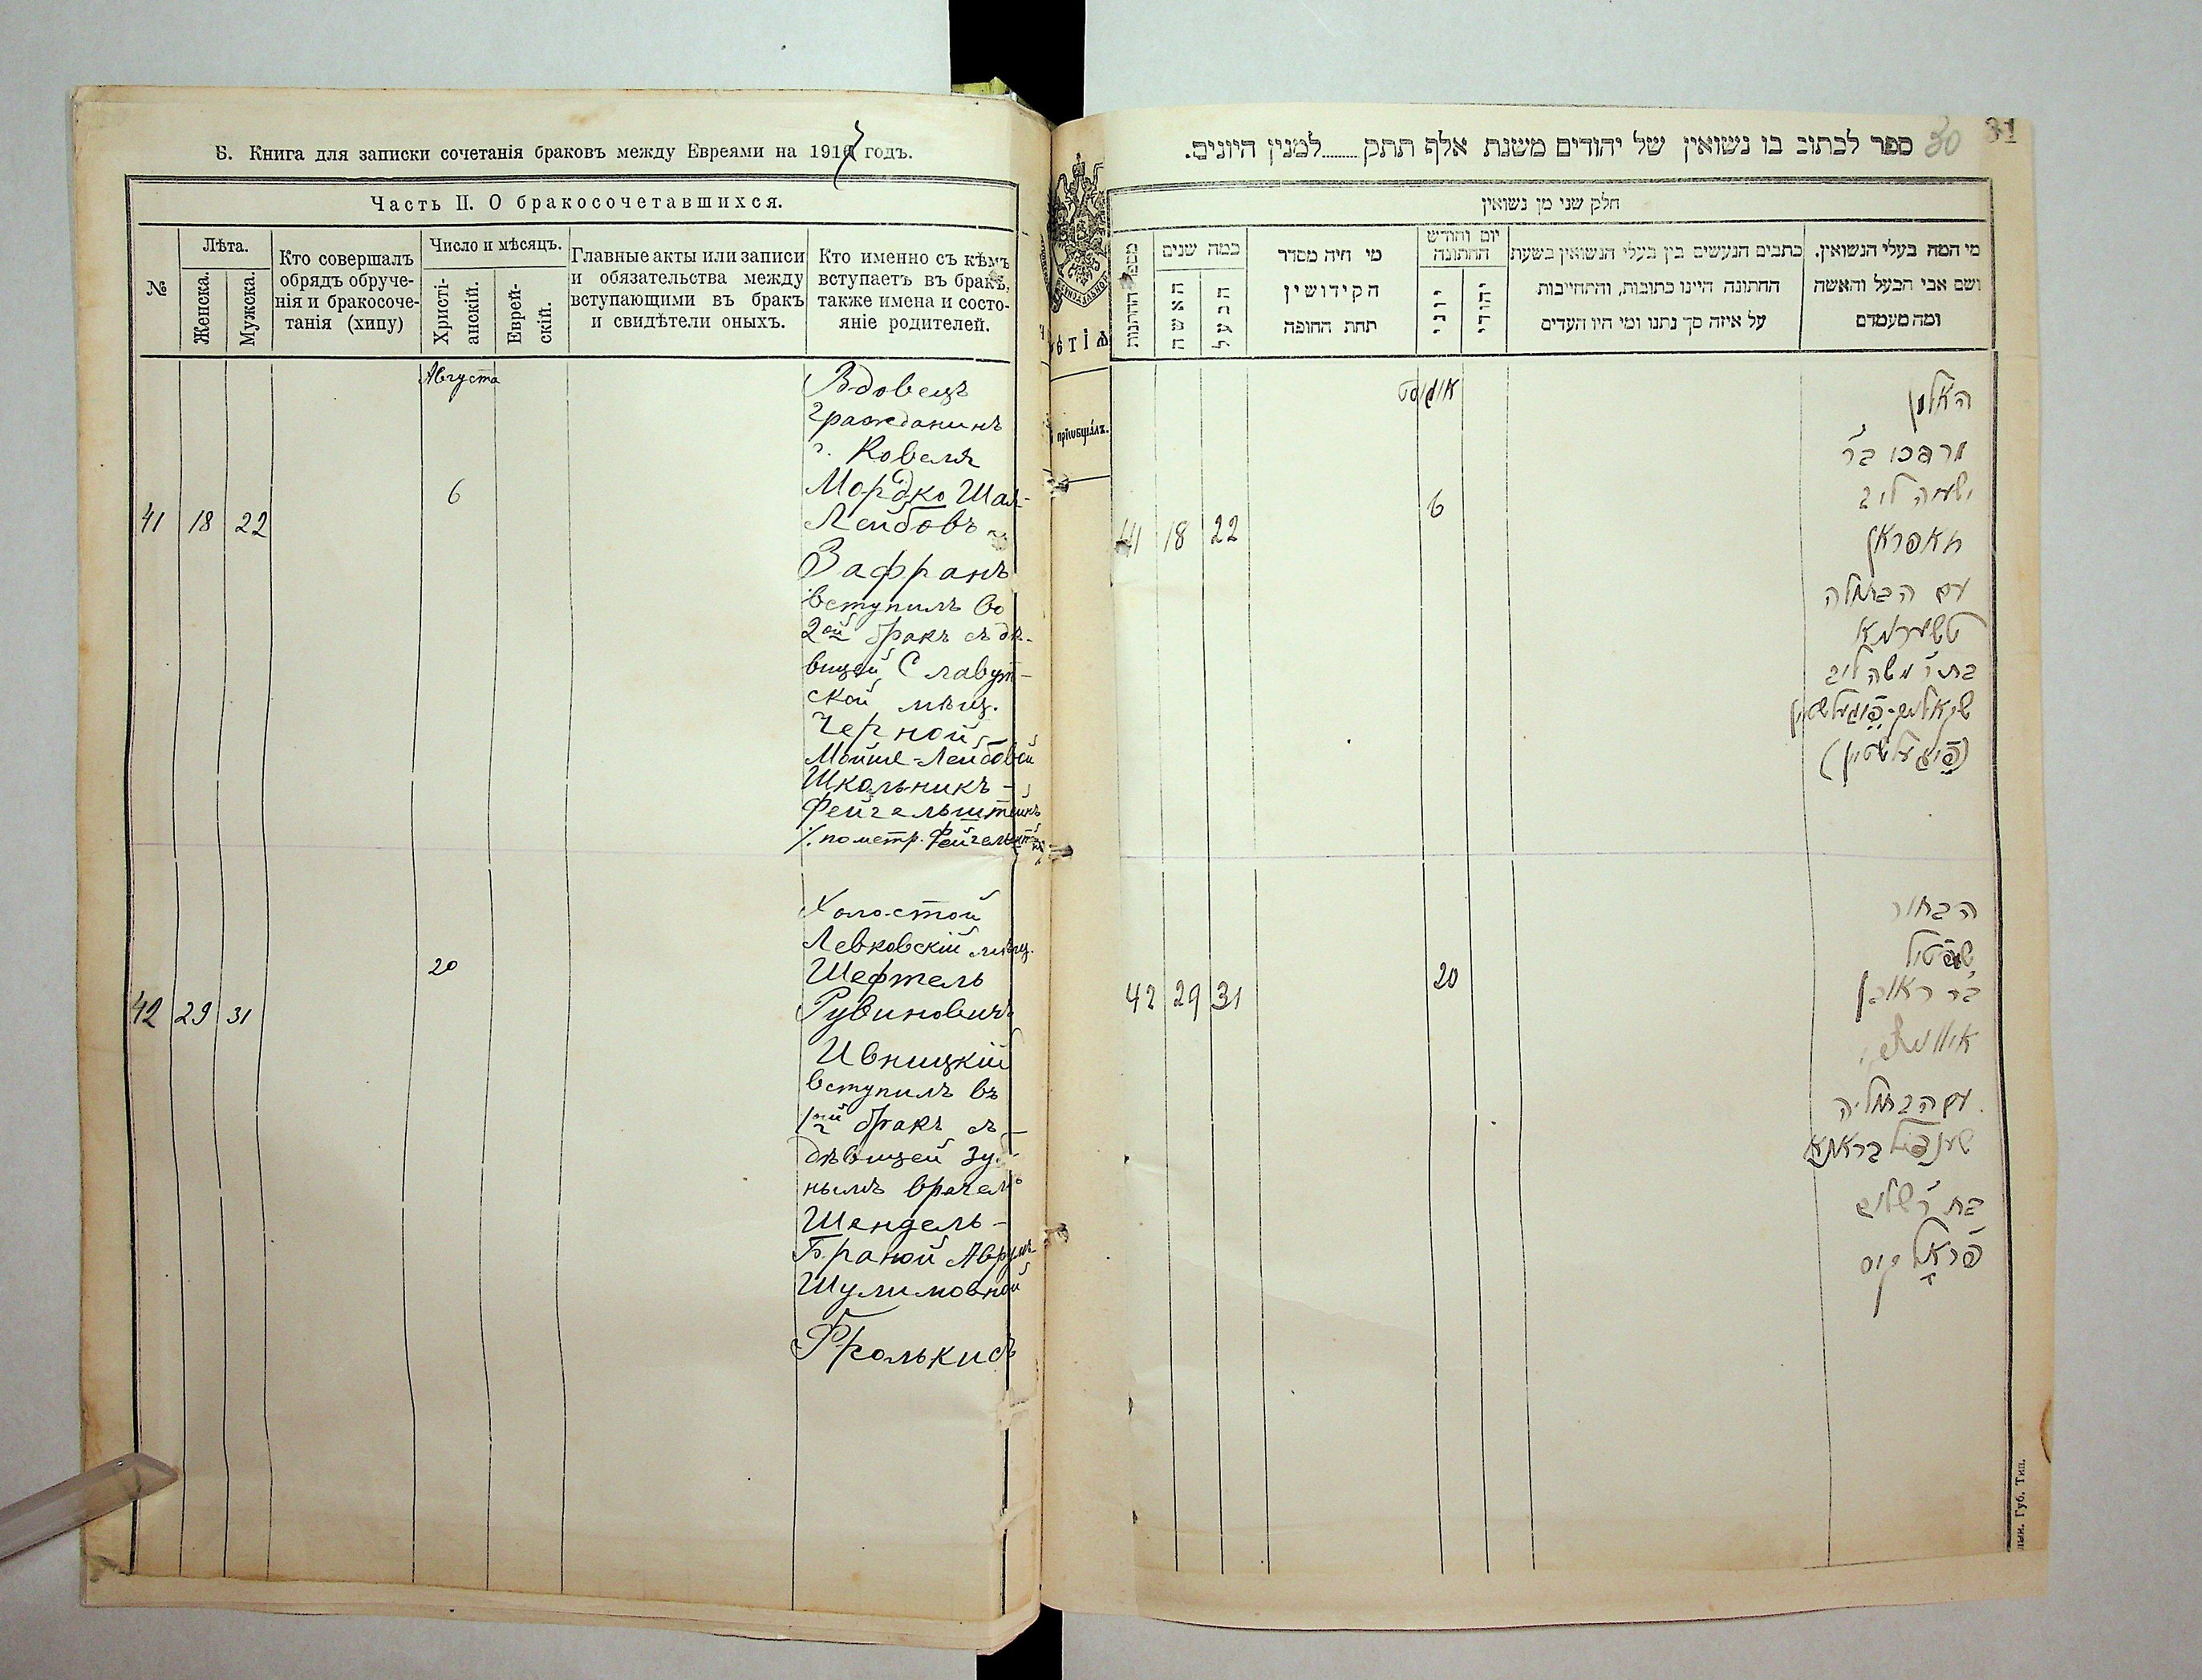 Б. Книга для записки сочетанія браковъ между Евреями на 1917 годъ.
Часть II. О бракосочетавшихся.
№
Лѣта.
Женска.
Мужска.
Кто совершалъ
обрядъ обруче-
нія и бракосоче-
танія (хипу)
Число и мѣсяцъ.
Христі-
анскій.
Еврей-
скій.
Главные акты или записи
и обязательства между
вступающими въ бракъ
и свидѣтели оныхъ.
Кто именно съ кѣмъ
вступаетъ въ бракъ,
также имена и состо-
яніе родителей.
Августа
41 18 22
6
Вдовецъ
гражданинъ
г. Ковеля
Мордко Шая-
Лейбовъ
Зафранъ
вступилъ во
2ой бракъ съ дѣ-
вицей Славут-
ской мѣщ.
Черной
Мойше-Лейбовой
Школьникъ-
Фейгельштейнъ
42 29 31
20
Холостой
Левковскій мѣщ.
Шефтель
Рувиновичъ
Ивницкій
вступилъ въ
1ой бракъ съ
дѣвицей зуб-
нымъ врачемъ
Шендель-
Браной Аврумъ
Шулимовной
Фролькисъ
ספר לכתוב בו נשואין של יהודים משנת אלף תתק........למנין היונים.
30
31
חלק שני מן נשואין
מספר החתנות
כמה שנים
האשה
הבעל
מי היה מסדר
הקידושין
תחת החופה
יום וחודש
החתונה
יוני
יהודי
כתבים הנעשים בין בעלי הנשואין בשעת
החתונה היינו כתובות, והתחייבות
על איזה סך נתנו ומי היו העדים
מי המה בעלי הנשואין.
ושם אבי הבעל והאשה
ומה מעמדם
אוגוסט
41 18 22
6
האלמן
מרדכי בר
ישעיה ליב
זאפראן
עם הבתולה
טשערנא
בת ר' משה ליב
שקאלניק-פייגעלשטיין
(פייגעלשטיין)
42 29 31
20
הבחור
שפטיל
בר ראובן
איווניצקי
עם הבתולה
שענדיל בראנא
בת ר' שלום
פראלקיס
Губ. Тип.